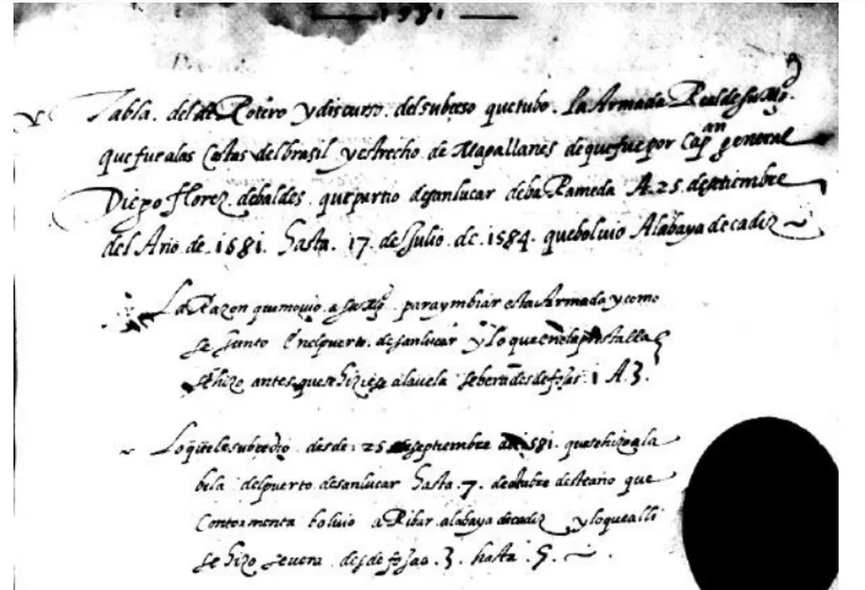 1581
Tabla. del Rotero y discurso. del subceso que tubo. La Armada Real de su Mgd.
que fue a las Costas del brasil y estrecho. de Magallanes de que fue por Capan general
Diego florez. de baldes. que partio de sanlucar de baRameda A.25. de setiembre
del Año de.1581. hasta. 17. de Julio. de.1584. que bolvio A la baya de cadiz
La Razon que movio. a su Mgd. para ymbiar esta Armada y como
se Junto En el puerto. de sanlucar y lo que en
se hizo antes que se hiziese a la vela se vera desde fojas. 1 A.3.
Lo que le subcedio desde. 25 de septiembre de 1581. que se hizo a la
bela del puerto. de sanlucar hasta.7. de otubre deste año que
Con tormenta bolvio aRibar. a la baya de cadiz y lo que alli
se hizo se vera desde fojas. 3. hasta .5.